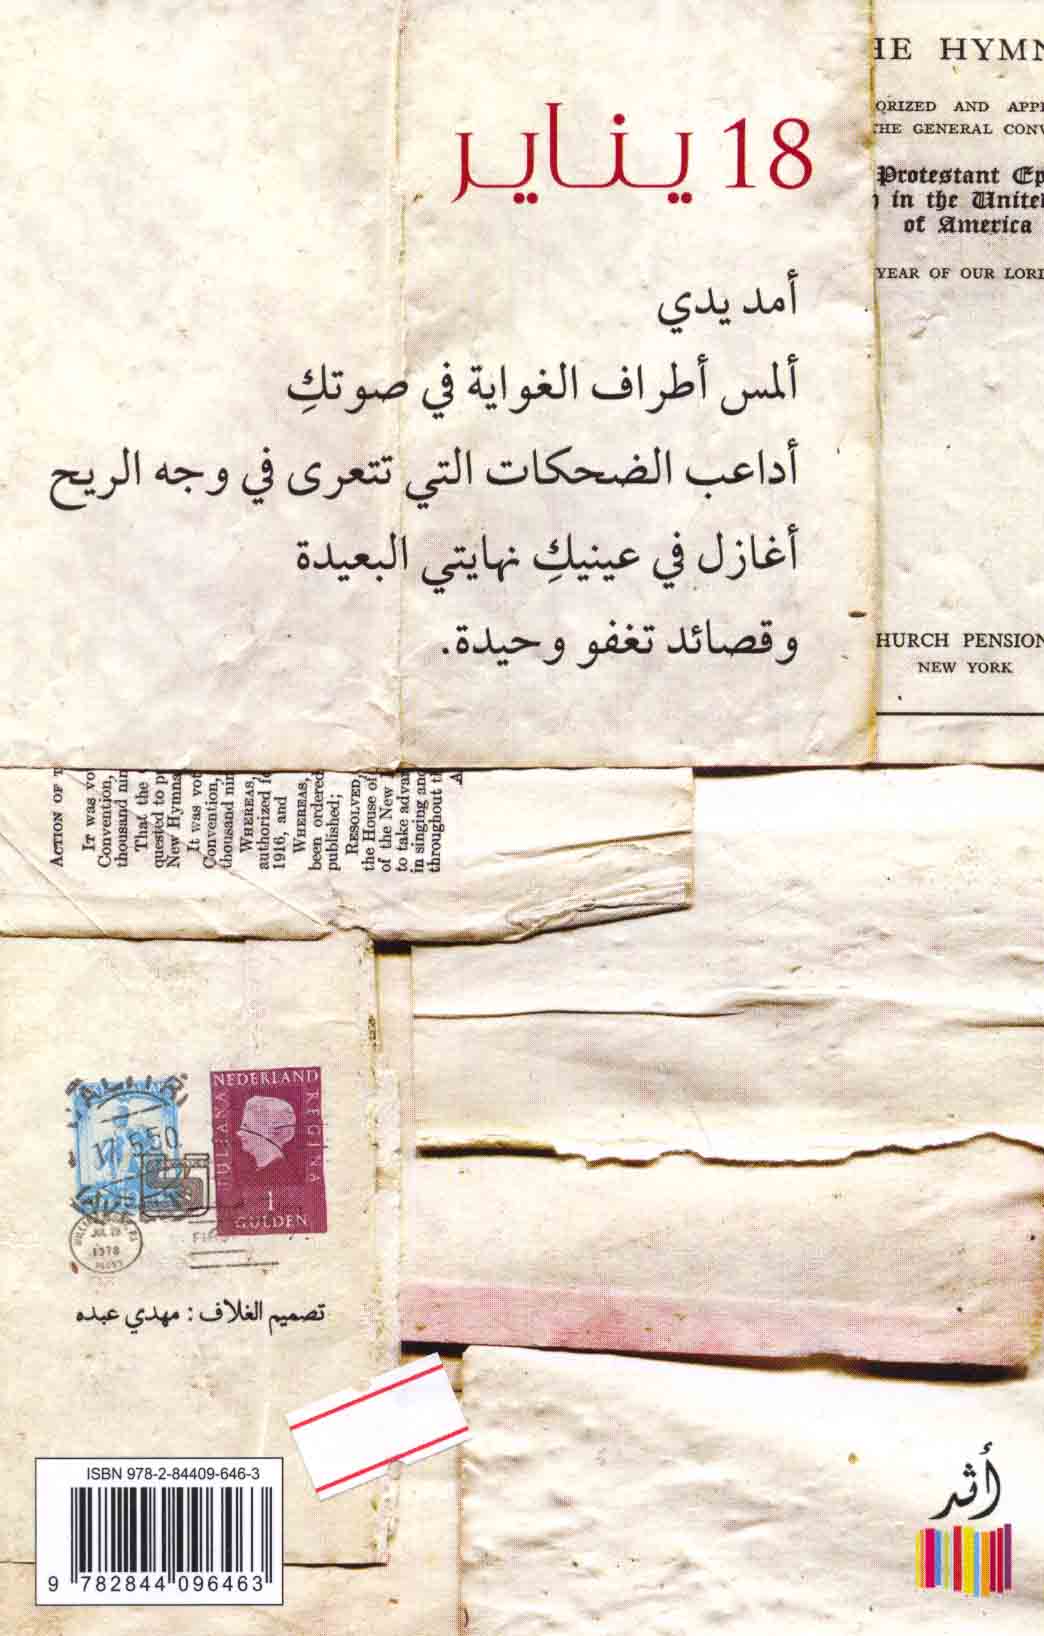 18 يناير
أمد يدي
ألمس أطراف الغواية في صوتكِ
أداعب الضحكات التي تتعرى في وجه الريح
أغازل في عينيكِ نهايتي البعيدة
وقصائد تغفو وحيدة.
HE HYMN
ORIZED AND APP
THE GENERAL CONV
Protestant Ep
in the Unite
of America
YEAR OF OUR LORD
HURCH PENSION
NEW YORK
ACTION OF T
IT was vo
Convention,
thousand nin
That the
quested to p
New Hymna
It was vot
Convention,
thousand nin
WHEREAS,
authorized f
1916, and
WHEREAS,
been ordered
published;
RESOLVED,
the House of
of the New
to take advan
in singing and
throughout t
NEDERLAND
JULIANA
REGINA
1
GULDEN
17.550
JUL
1978
تصميم الغلاف : مهدي عبده
ISBN 978-2-84409-646-3
9 782844 096463
أثر